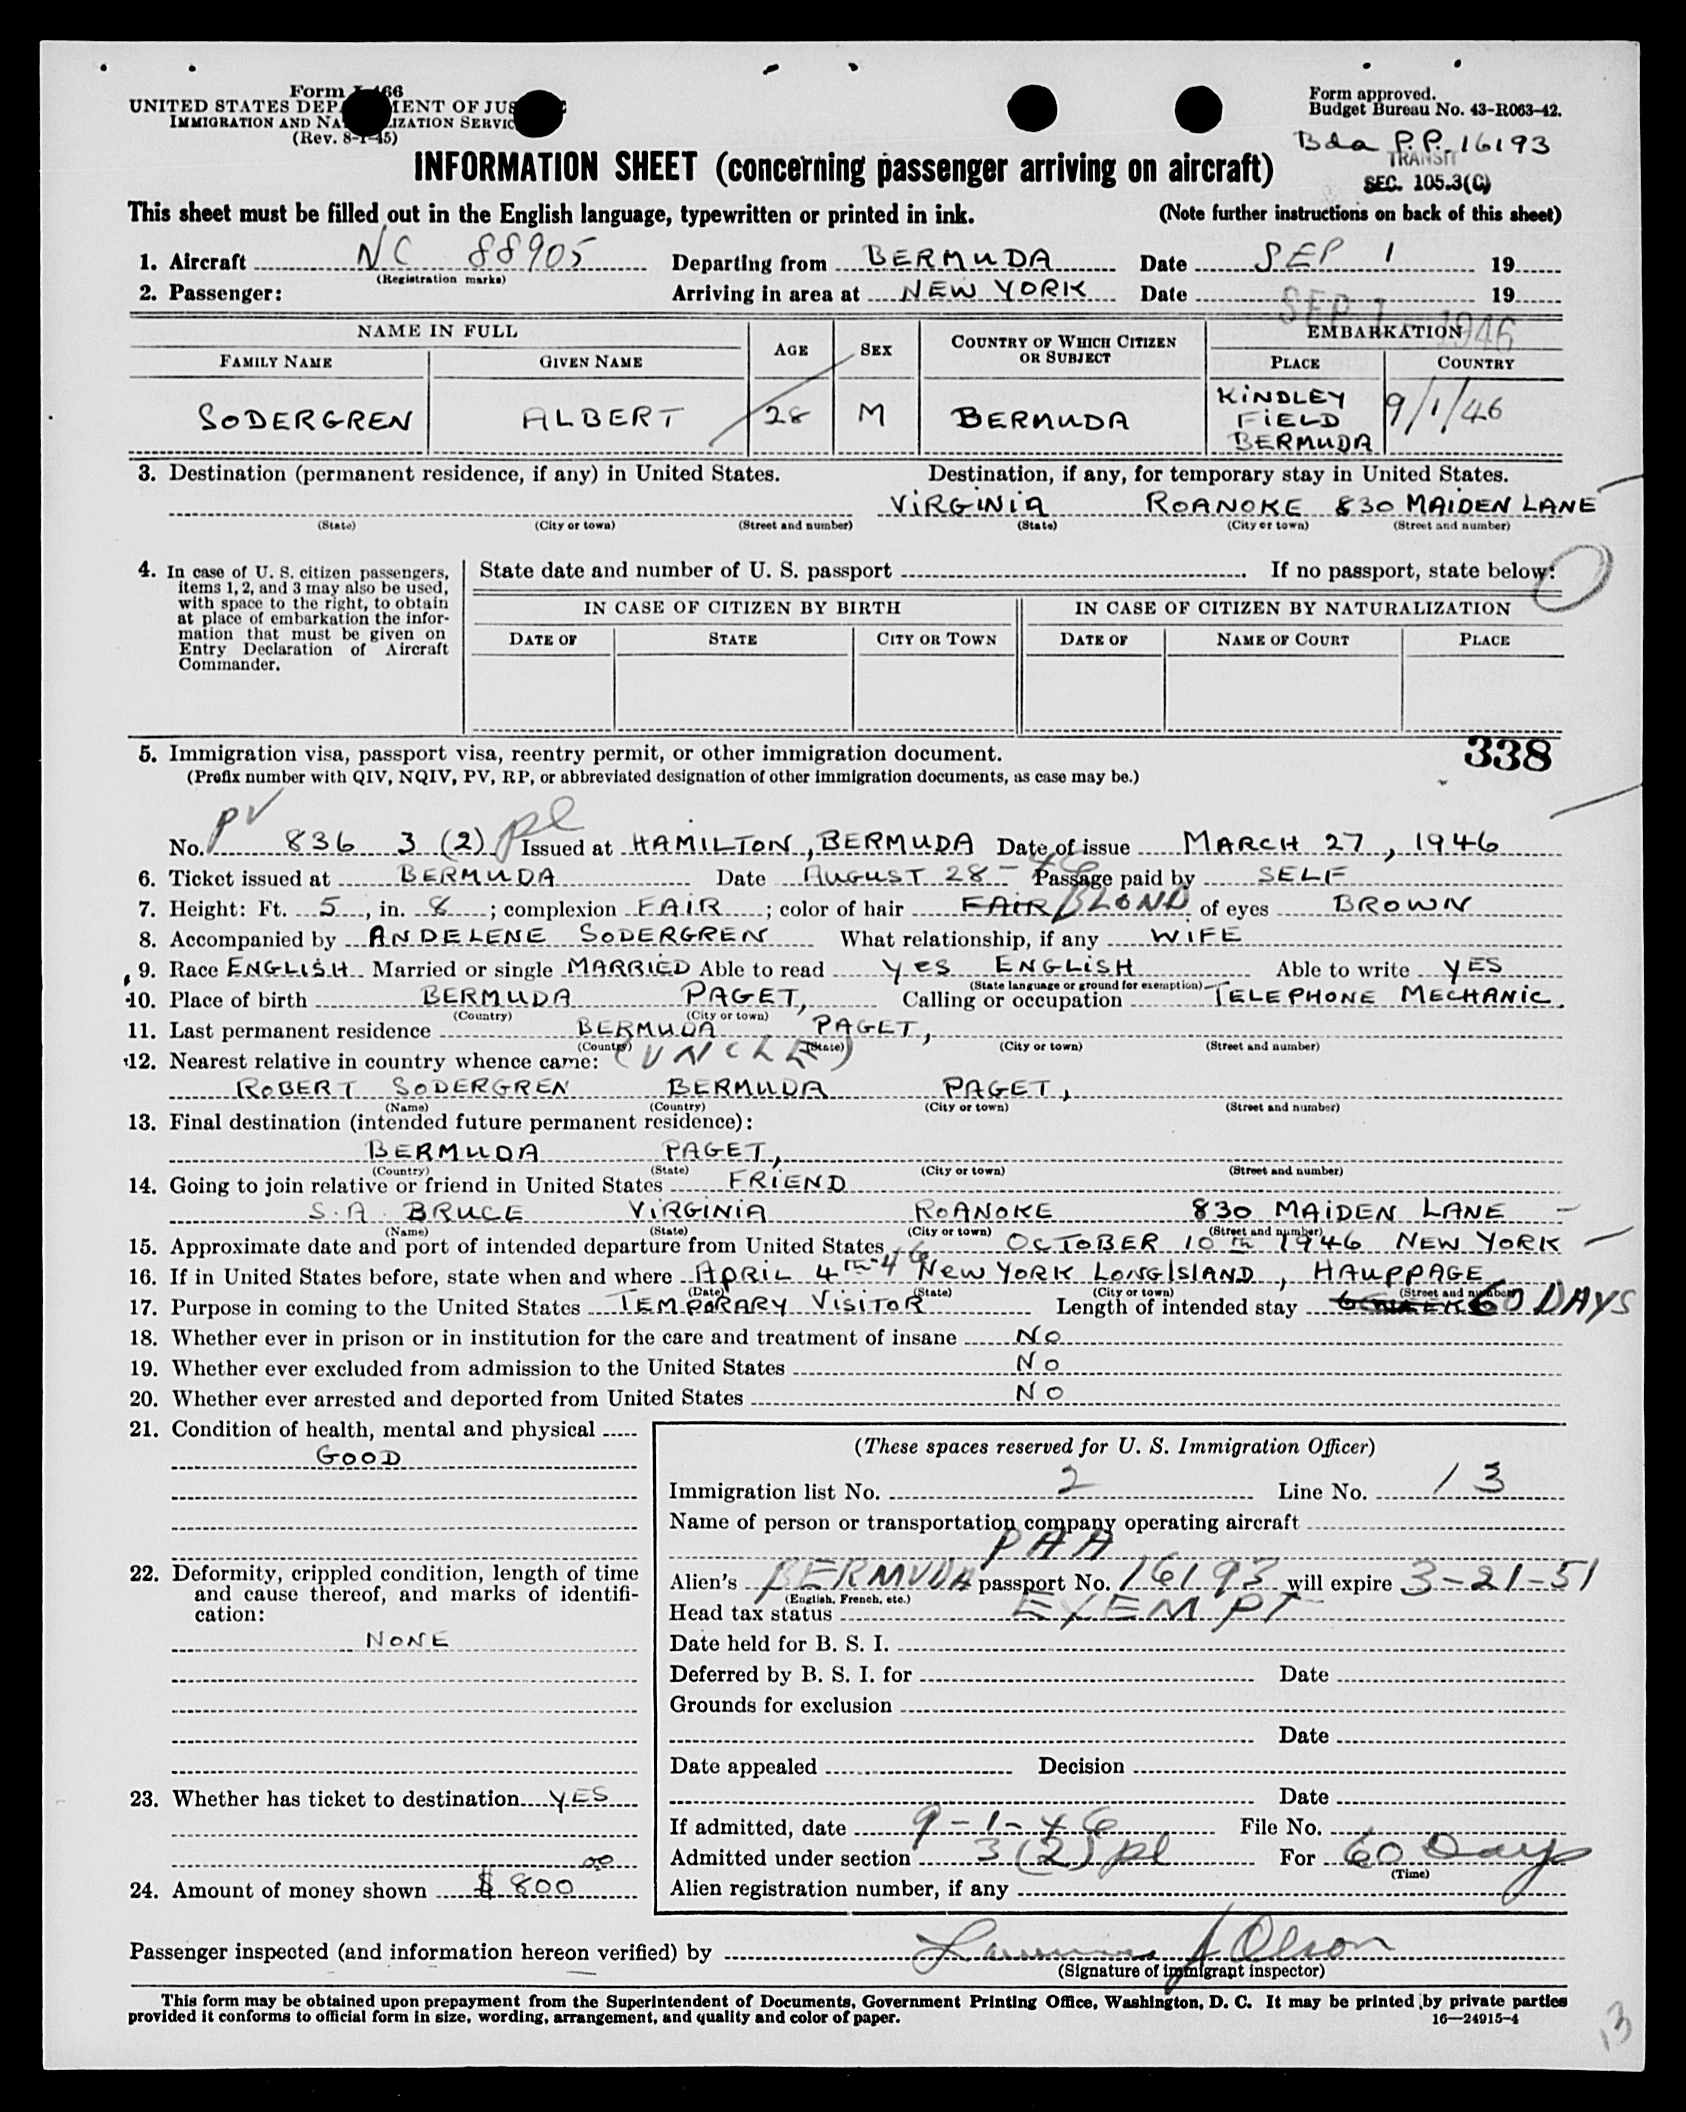 Form I-466
UNITED STATES DEPARTMENT OF JUSTICE
IMMIGRATION AND NATURALIZATION SERVICE
(Rev. 8-1-45)
Form approved.
Budget Bureau No. 43-R063-42.
Bda P.P. 16193
TRANSIT
SEC. 105.3(C)
INFORMATION SHEET (concerning passenger arriving on aircraft)
This sheet must be filled out in the English language, typewritten or printed in ink. (Note further instructions on back of this sheet)
1. Aircraft NC 88905 Departing from BERMUDA Date SEP 1 19
(Registration marks)
2. Passenger: Arriving in area at NEW YORK Date SEP 1 1946 19
NAME IN FULL AGE SEX COUNTRY OF WHICH CITIZEN OR SUBJECT EMBARKATION
FAMILY NAME GIVEN NAME PLACE COUNTRY
SODERGREN ALBERT 28 M BERMUDA KINDLEY FIELD BERMUDA 9/1/46
3. Destination (permanent residence, if any) in United States. Destination, if any, for temporary stay in United States.
VIRGINIA ROANOKE 830 MAIDEN LANE
(State) (City or town) (Street and number) (State) (City or town) (Street and number)
4. In case of U. S. citizen passengers,
items 1, 2, and 3 may also be used,
with space to the right, to obtain
at place of embarkation the infor-
mation that must be given on
Entry Declaration of Aircraft
Commander.
State date and number of U. S. passport . If no passport, state below:
IN CASE OF CITIZEN BY BIRTH IN CASE OF CITIZEN BY NATURALIZATION
DATE OF STATE CITY OR TOWN DATE OF NAME OF COURT PLACE
338
5. Immigration visa, passport visa, reentry permit, or other immigration document.
(Prefix number with QIV, NQIV, PV, RP, or abbreviated designation of other immigration documents, as case may be.)
No. PV 836 3 (2) pl Issued at HAMILTON, BERMUDA Date of issue MARCH 27, 1946
6. Ticket issued at BERMUDA Date AUGUST 28-46 Passage paid by SELF
7. Height: Ft. 5, in. 8; complexion FAIR; color of hair FAIR BLOND of eyes BROWN
8. Accompanied by ANDELENE SODERGREN What relationship, if any WIFE
9. Race ENGLISH Married or single MARRIED Able to read YES ENGLISH Able to write YES
(State language or ground for exemption)
10. Place of birth BERMUDA PAGET, Calling or occupation TELEPHONE MECHANIC.
(Country) (City or town)
11. Last permanent residence BERMUDA PAGET,
(Country) (State) (City or town) (Street and number)
12. Nearest relative in country whence came: (UNCLE)
ROBERT SODERGREN BERMUDA PAGET,
(Name) (Country) (City or town) (Street and number)
13. Final destination (intended future permanent residence):
BERMUDA PAGET,
(Country) (State) (City or town) (Street and number)
14. Going to join relative or friend in United States FRIEND
S.A. BRUCE VIRGINIA ROANOKE 830 MAIDEN LANE
(Name) (State) (City or town) (Street and number)
15. Approximate date and port of intended departure from United States OCTOBER 10TH 1946 NEW YORK
16. If in United States before, state when and where APRIL 4TH-46 NEW YORK LONG ISLAND, HAUPPAGE
(Date) (State) (City or town) (Street and number)
17. Purpose in coming to the United States TEMPORARY VISITOR Length of intended stay 60 DAYS
18. Whether ever in prison or in institution for the care and treatment of insane NO
19. Whether ever excluded from admission to the United States NO
20. Whether ever arrested and deported from United States NO
21. Condition of health, mental and physical
GOOD
22. Deformity, crippled condition, length of time
and cause thereof, and marks of identifi-
cation:
NONE
23. Whether has ticket to destination YES
24. Amount of money shown $800 00
(These spaces reserved for U. S. Immigration Officer)
Immigration list No. 2 Line No. 13
Name of person or transportation company operating aircraft
PAA
Alien's BERMUDA passport No. 16193 will expire 3-21-51
(English, French, etc.)
Head tax status EXEMPT
Date held for B. S. I.
Deferred by B. S. I. for Date
Grounds for exclusion
Date
Date appealed Decision
Date
If admitted, date 9-1-46 File No.
Admitted under section 3(2) pl For 60 Days
(Time)
Alien registration number, if any
Passenger inspected (and information hereon verified) by J Olson
(Signature of immigrant inspector)
This form may be obtained upon prepayment from the Superintendent of Documents, Government Printing Office, Washington, D. C. It may be printed by private parties
provided it conforms to official form in size, wording, arrangement, and quality and color of paper. 16—24915-4
13